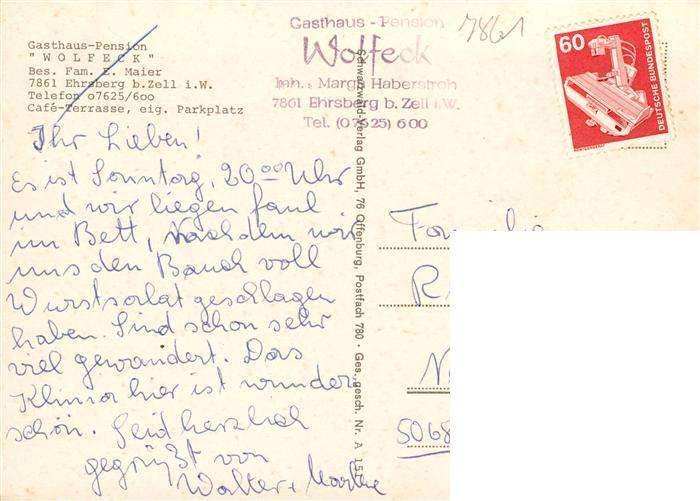 Gasthaus-Pension
"WOLFECK"
Bes. Fam. E. Maier
7861 Ehrsberg b.Zell i.W.
Telefon 07625/600
Café-Terrasse, eig. Parkplatz
Gasthaus - Pension
Wolfeck
Inh.: Margit Haberstroh
7861 Ehrsberg b. Zell i.W.
Tel. (07625) 600
7861
60
DEUTSCHE BUNDESPOST
Ihr Lieben!
Es ist Sonntag, 20 00 Uhr
und wir liegen faul
im Bett, Nachdem wir
uns den Bauch voll
Wurstsalat geschlagen
haben. Sind schon sehr
viel gewandert. Das
Klima hier ist wunder
schön. Seid herzlich
gegrüßt von
Walter +
Schwarzwald-Verlag GmbH, 76 Offenburg, Postfach 780 · Ges. gesch. Nr. A 151
Familie
R
N
5068